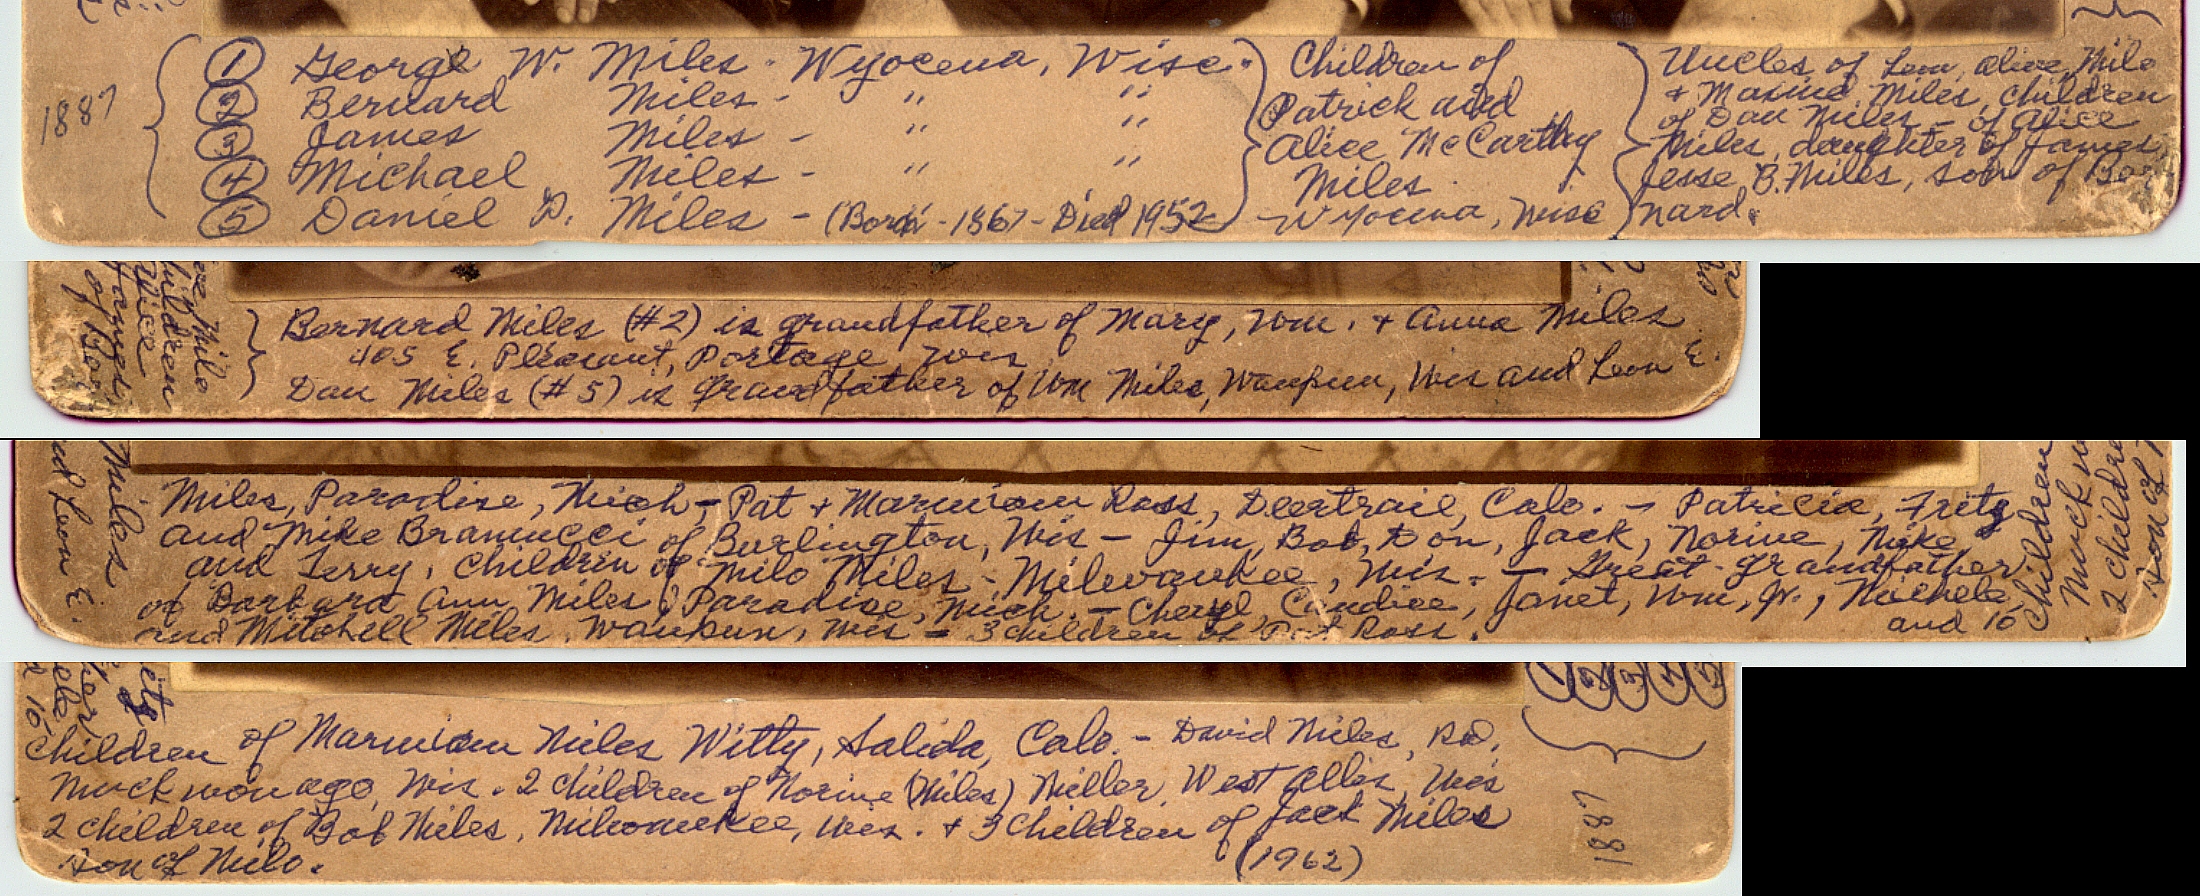 1887
① George W. Miles - Wyocena, Wisc.
② Bernard Miles - " "
③ James Miles - " "
④ Michael Miles - " "
⑤ Daniel D. Miles - (Born - 1867 - Died 1952
Children of
Patrick and
Alice McCarthy
Miles
- Wyocena, Wisc
Uncles of Leon, Alice, Milo
+ Maxine Miles, children
of Dan Miles - of Alice
Miles, daughter of James
Jesse B. Miles, son of Ber
nard.
Bernard Miles (#2) is grandfather of Mary, Wm. + Anna Miles
405 E. Pleasant, Portage Wis
Dan Miles (#5) is grandfather of Wm Miles, Waupun, Wis and Leon E.
Miles, Paradise, Mich - Pat + Ross, Deertrail, Colo. - Patricia, Fritz
and Mike Branucci of Burlington, Wis - Jim, Bob, Don, Jack, Norine, Mike
and Terry, Children of Milo Miles - Milwaukee, Wis. - Great-grandfather
of Barbara Ann Miles, Paradise, Mich. - Cheryl, Candice, Janet, Wm, Jr., Michele
and Mitchell Miles, Waupun, Wis - 3 children of Pat Ross. and 10
Children of Miles Witty, Salida, Colo. - David Miles, Rd,
Muckwonago, Wis. 2 children of Norine (Miles) Miller, West Allis, Wis
2 children of Bob Miles, Milwaukee, Wis. + 3 Children of Jack Miles
son of Milo. (1962)
1887